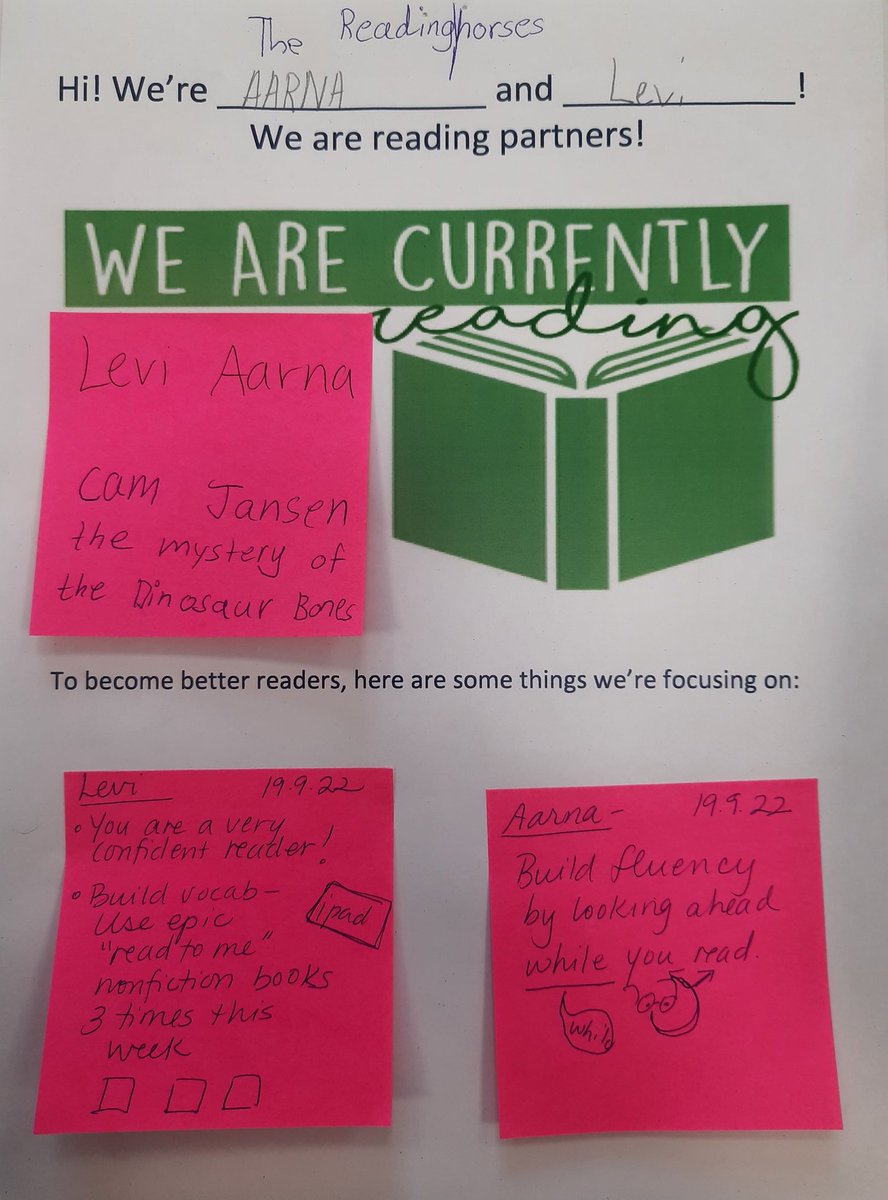 The Reading|horses
Hi! We're AARNA and Levi!
We are reading partners!
WE ARE CURRENTLY
reading
Levi Aarna
Cam Jansen
the mystery of
the Dinosaur Bones
To become better readers, here are some things we're focusing on:
Levi 19.9.22
• You are a very
confident reader!
• Build vocab-
Use epic
ipad
"read to me"
nonfiction books
3 times this
week
Aarna- 19.9.22
Build fluency
by looking ahead
while you read.